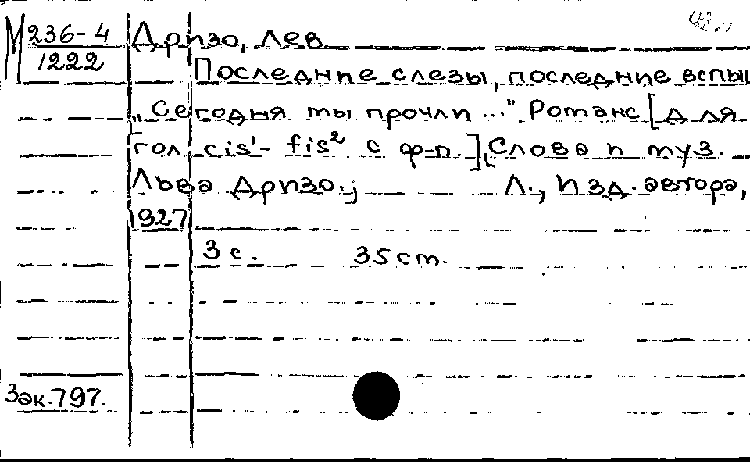 М 236-4 Дризо, Лев
1222
Последние слезы, последние вспы
„Сегодня ты прочли ..." Романс [для
гол. cis¹- fis² с ф-п.], Слова и муз.
Льва Дризо.; Л., Изд. автора,
1927
3 с. 35 cm.
Зак. 797.